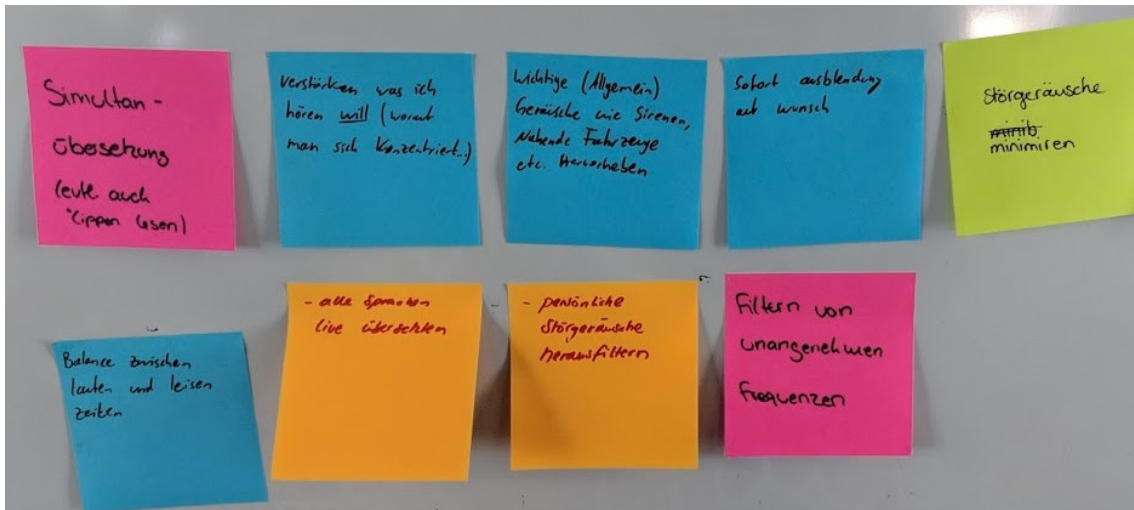 Simultan-
übersetzung
(evtl. auch
Lippen lesen)
Verstärken was ich
hören will (worauf
man sich konzentriert..)
Wichtige (Allgemein)
Geräusche wie Sirenen,
Nahende Fahrzeuge
etc. Hervorheben
Sofort ausblendung
auf wunsch
Störgeräusche
minib
minimiren
Balance zwischen
lauten und leisen
zeiten
- alle Sprachen
live übersetzten
- persönliche
Störgeräusche
herausfiltern
Filtern von
unangenehmen
Frequenzen